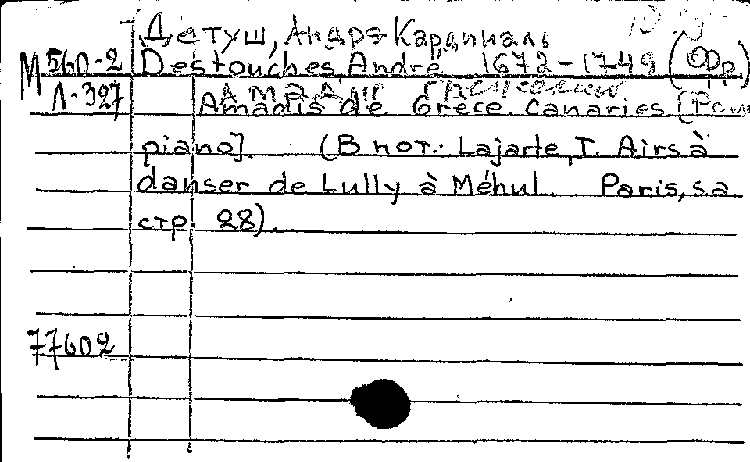 Детуш, Андрэ Кардиналь
М 560-2 Destouches, André 1672-1749 (Фр)
Л-327 Амадис Греческий
Amadis de Grèce. Canaries [Pour
piano]. (В нот.: Lajarte, T. Airs à
danser de Lully à Méhul. Paris, s.a.
стр. 28).
77602